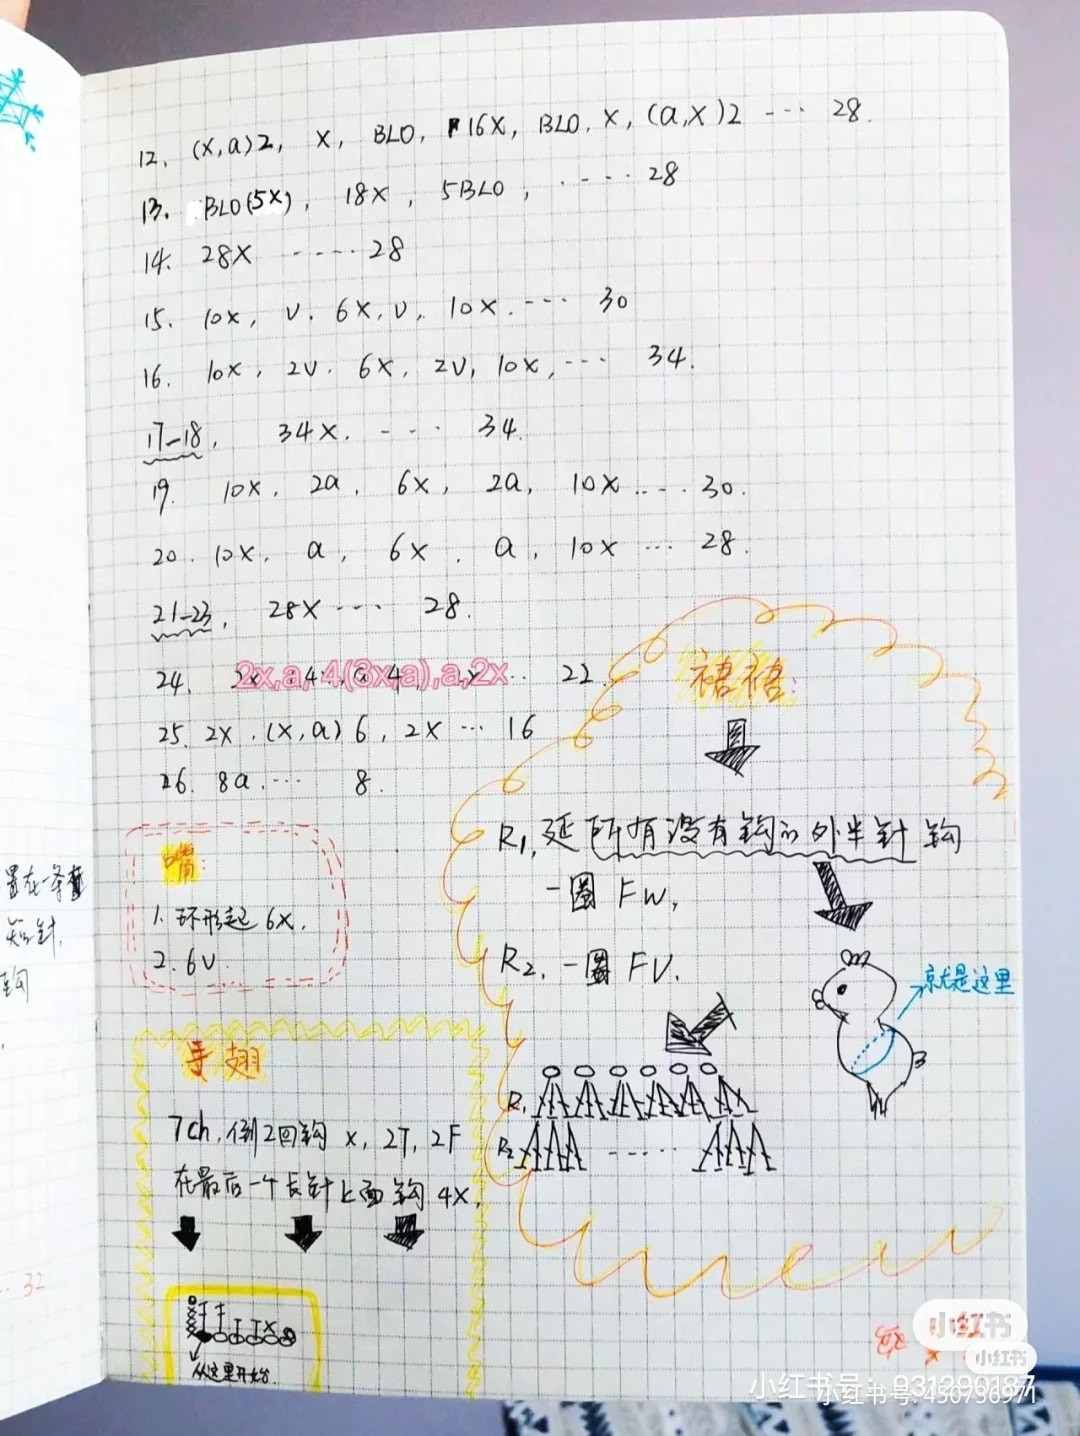 12. (x,a)2, x, BLO, 16x, BLO, x, (a,x)2 --- 28.
13. BLO(5x), 18x, 5BLO, ----- 28
14. 28x ----- 28
15. 10x, v. 6x, v, 10x. --- 30
16. 10x, 2v. 6x, 2v, 10x, --- 34.
17-18, 34x. ---- 34.
19. 10x, 2a, 6x, 2a, 10x ---- 30.
20. 10x, a, 6x, a, 10x --- 28.
21-23, 28x ---- 28.
24. 2x,a,4(3x,a),a,2x 22.
25. 2x.(x,a)6, 2x --- 16
26. 8a. --- 8.
嘴:
1. 环形起6x.
2. 6v.
手翅
7ch, 倒2回钩 x, 2T, 2F
在最后一个长针上面钩4x,
从这里开始
裙裙:
R1, 延所有没有钩的外半针钩
一圈 FW,
R2, 一圈 FV.
就是这里
R1
R2
置在一条
短针,
钩
32
小红书
小红书
小红书号: 931290187
小红书号: 450736971